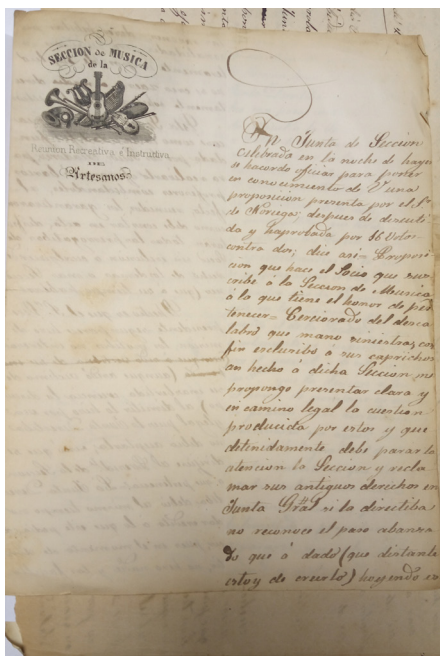 SECCION de MUSICA
de la
Reunion Recreativa é Instructiva
DE
Artesanos
En Junta de Seccion
Celebrada en la noche de hayer
se hacordo oficiar para poner
en conocimiento de V una
proposicion presenta por el Sr
de Noriega; despues de descuti
da y haprobada por 16 Votos
contra dos; dice asi= Proposi
cion que hace el Socio que sus
cribe á la Seccion de Meusica
á la que tiene el honor de per
tenecer= Cerciorado del desca
labro que mano siniestra, con
fin esclusibo á sus caprichos
an hecho á dicha Seccion, me
propongo presentar clara y
en camino legal la cuestion
producida por estos y que
detenidamente debe parar la
atencion la Seccion y recla
mar sus antiguos derechos en
Junta Gral si la directiba
no reconoce el paso abanza
do que á dado (que distante
estoy de creerlo) hoyendo